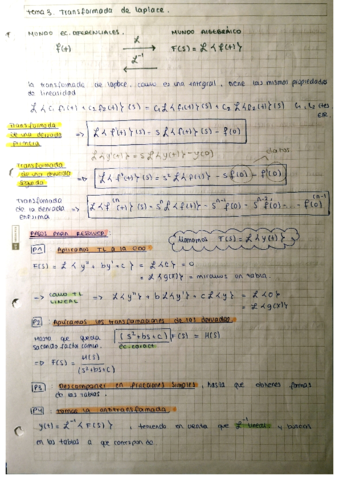 tema 3. Transformada de laplace.
MUNDO EC. DIFERENCIALES. MUNDO ALGEBRAICO
f(t) ℒ ℒ⁻¹ F(s) = ℒ{f(t)}
la transformada de laplace, como es una integral, tiene las mismas propiedades
de linealidad
ℒ{c₁ f₁(t) + c₂ f₂(t)}(s) = c₁ℒ{f₁(t)}(s) + c₂ ℒ{f₂(t)}(s)
Transformada
de una derivada
primera
=> ℒ{f'(t)}(s) = sℒ{f(t)} - f(0)
ℒ{y'(t)} = sℒ{y(t)} - y(0)
datos
Transformada
de una derivada
segunda
=> ℒ{f''(t)}(s) = s²ℒ{f(t)} - sf(0) - f'(0)
Transformada
de la derivada
enésima
PASOS PARA RESOLVER
llamamos Y(s) = ℒ{y(t)}
P1 Aplicamos TL a la
=> como TL
LINEAL
=> ℒ{y''} + bℒ{y'} + cℒ{y} =
P2 Aplicamos las transformaciones de las derivadas
Hasta que queda
sacando factor común.
(s² + bs + c) F(s) = H(s)
ec. caract
=> F(s) = H(s)
(s² + bs + c)
P3 Descomponer en fracciones simples, hasta que obtienes formas
de las tablas.
P4 Tomar la antitransformada
y(t) = ℒ⁻¹{F(s)}, teniendo en cuenta que ℒ⁻¹ lineal y buscar
en las tablas a que corresponde.